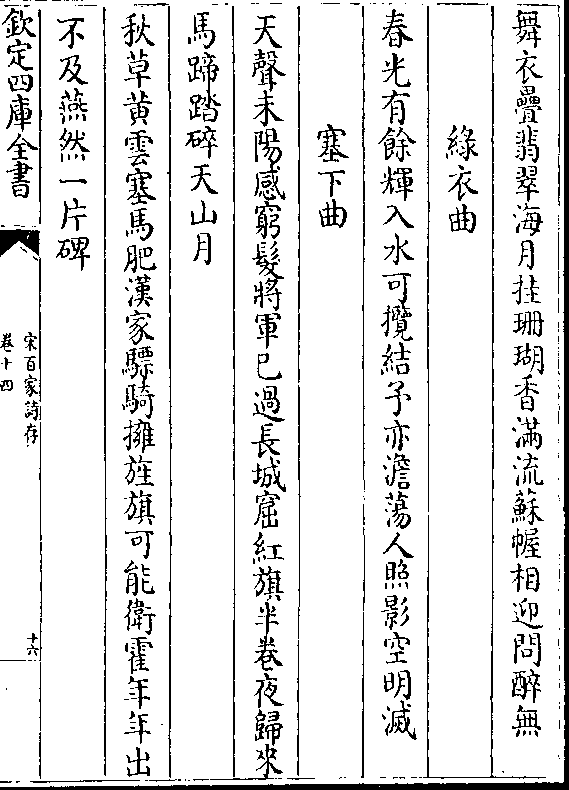 舞衣疊翡翠海月挂珊瑚香滿流蘇幄相迎問醉無
綠衣曲
春光有餘輝入水可攬結予亦澹蕩人照影空明滅
塞下曲
天聲未陽感窮髮將軍已過長城窟紅旗半卷夜歸來
馬蹄踏碎天山月
秋草黃雲塞馬肥漢家驃騎擁旌旗可能衛霍年年出
不及燕然一片碑
欽定四庫全書
宋百家詩存
卷十四
十六